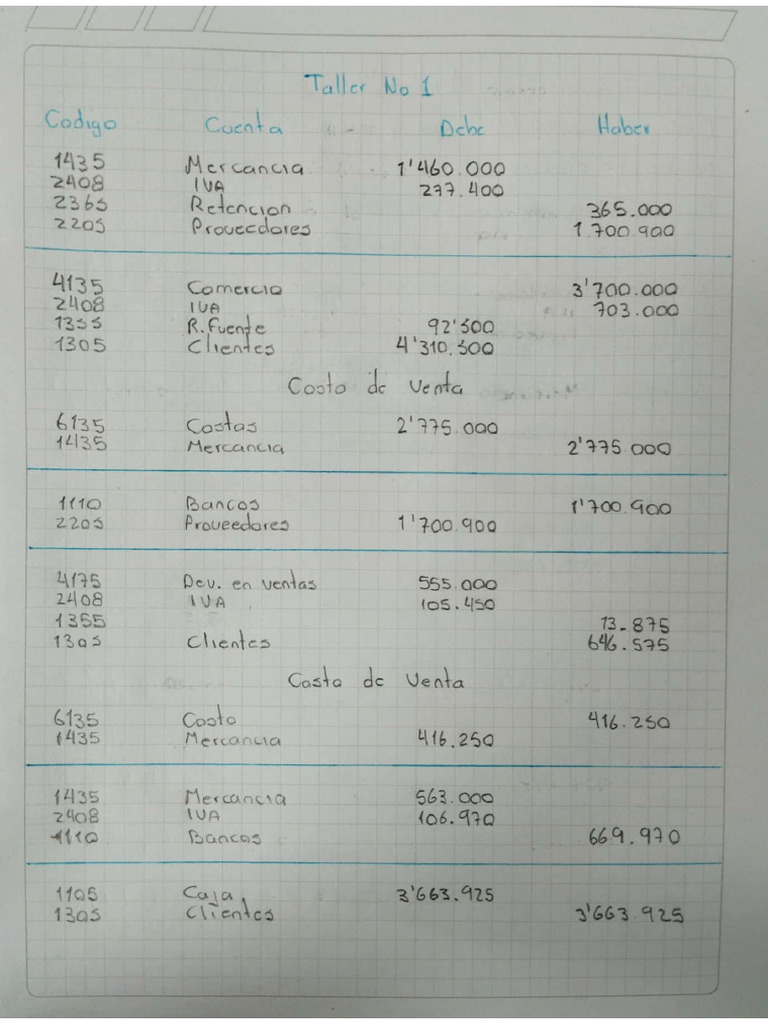 Taller No 1
Codigo Cuenta Debe Haber
1435 Mercancia 1'460.000
2408 IVA 277.400
2365 Retencion 365.000
2205 Proveedores 1.700.900
4135 Comercio 3'700.000
2408 IVA 703.000
1355 R. Fuente 92'500
1305 Clientes 4'310.500
Costo de Venta
6135 Costos 2'775.000
1435 Mercancia 2'775.000
1110 Bancos 1'700.900
2205 Proveedores 1'700.900
4175 Dev. en ventas 555.000
2408 IVA 105.450
1355 13.875
1305 Clientes 646.575
Costo de Venta
6135 Costo 416.250
1435 Mercancia 416.250
1435 Mercancia 563.000
2408 IVA 106.970
1110 Bancos 669.970
1105 Caja 3'663.925
1305 Clientes 3'663.925